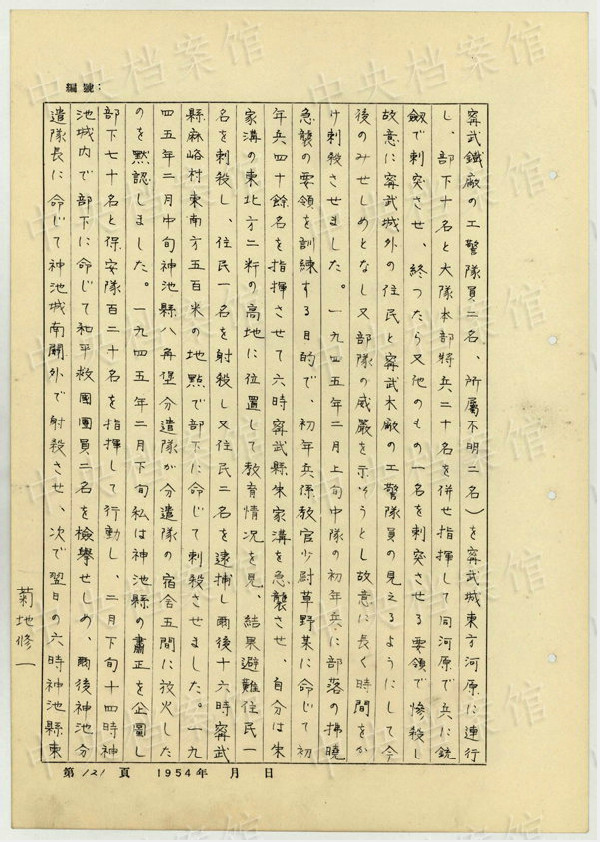 編號：
寗武鐵廠の工警隊員二名、所屬不明二名）を寗武城東方河原に連行
し、部下十名と大隊本部將兵二十名を併せ指揮して同河原で兵に銃
劔で刺突させ、終つたら又他のもの一名を刺突させる要領で惨殺し
故意に寗武城外の住民と寗武木廠の工警隊員の見えるようにして今
後のみせしめとなし又部隊の威嚴を示そうとし故意に長く時間をか
け刺殺させました。一九四五年二月上旬中隊の初年兵に部落の拂曉
急襲の要領を訓練する目的で、初年兵係教官少尉草野某に命じて初
年兵四十餘名を指揮させて六時寗武縣朱家溝を急襲させ、自分は朱
家溝の東北方二粁の高地に位置して教育情況を見、結果避難住民一
名を刺殺し、住民一名を射殺し又住民二名を逮捕し爾後十六時寗武
縣麻峪村東南方五百米の地點で部下に命じて刺殺させました。一九
四五年二月中旬神池縣八角堡分遣隊が分遣隊の宿舎五間に放火した
のを黙認しました。一九四五年二月下旬私は神池縣の肅正を企圖し
部下七十名と保安隊百二十名を指揮して行動し、二月下旬十四時神
池城内で部下に命じて和平救國團員二名を檢擧せしめ、爾後神池分
遣隊長に命じて神池城南關外で射殺させ、次で翌日の六時神池縣東
菊地修一
第121頁 1954年 月 日
中央档案馆